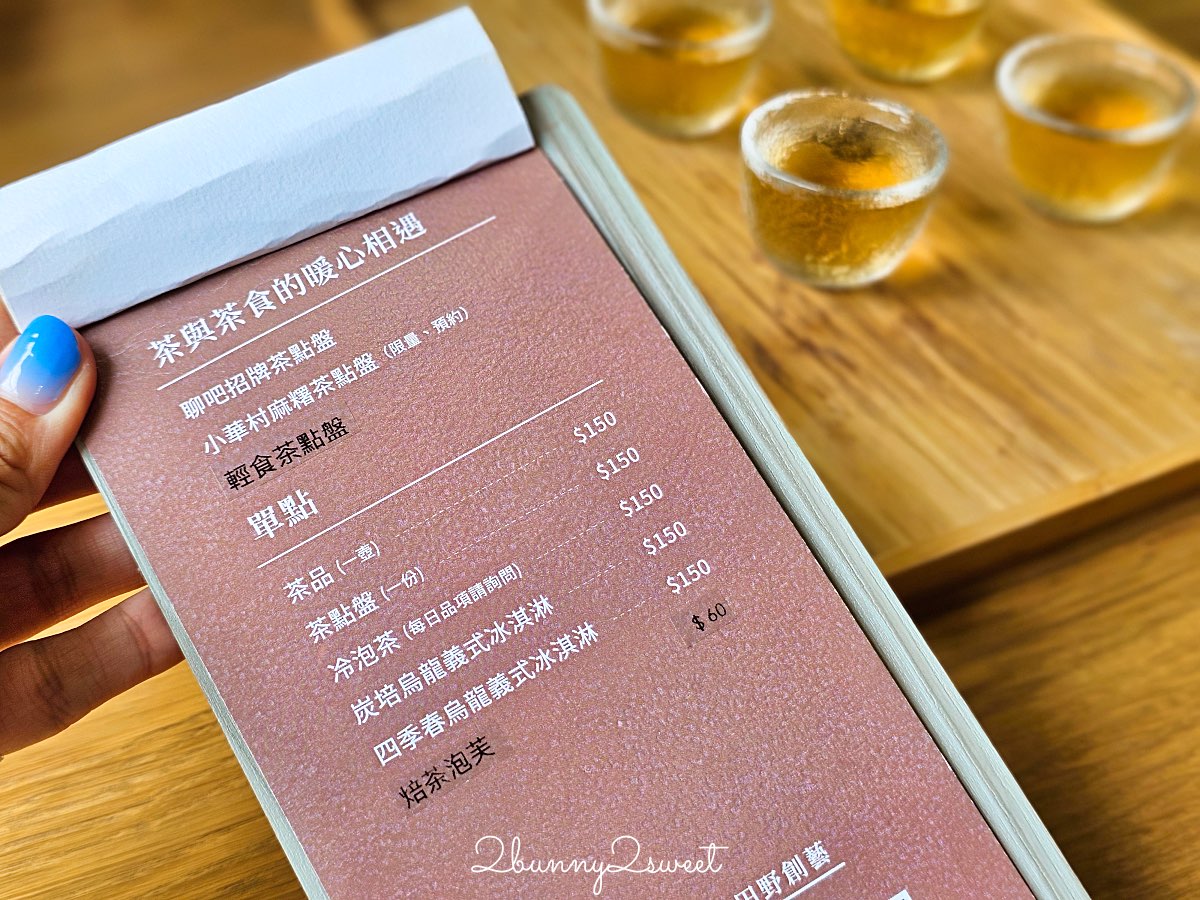 茶與茶食的暖心相遇
聊吧招牌茶點盤
小華村麻糬茶點盤 (限量、預約)
輕食茶點盤
單點
茶品 (一壺) $150
茶點盤 (一份) $150
冷泡茶 (每日品項請詢問) $150
炭培烏龍義式冰淇淋 $150
四季春烏龍義式冰淇淋 $150
焙茶泡芙 $60
田野創藝
2bunny2sweet